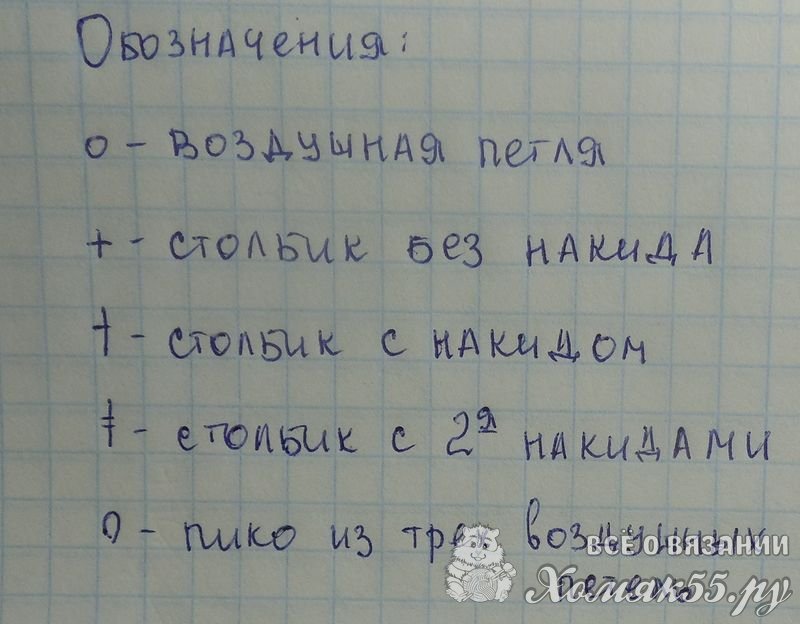 Обозначения:
о - воздушная петля
+ - столбик без накида
† - столбик с накидом
ǂ - столбик с 2я накидами
0 - пико из трех воздушных
петель
ВСЁ О ВЯЗАНИИ
Хомяк55.ру